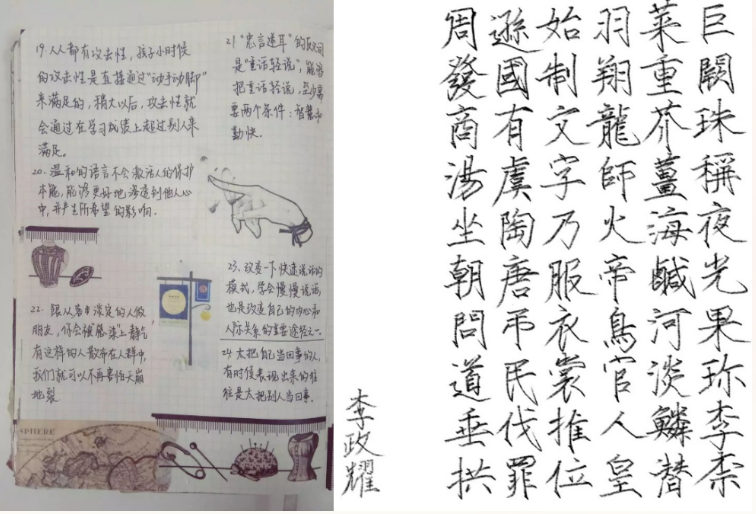 19. 人人都有攻击性,孩子小时候
的攻击性是直接通过“动手动脚”
来满足的,稍大以后,攻击性就
会通过在学习成绩上超过别人来
满足。
20. 温和的语言不会激活人的保护
本能,能够更好地渗透到他人心
中,并产生所希望的影响。
21 “忠言逆耳”的反义词
是“重话轻说”,能够
把重话轻说,至少需
要两个条件:智慧和
勤快。
22. 跟从容淡定的人做
朋友,你会被“感染”上静气
有这样的人散布在人群中,
我们就可以不再害怕天崩
地裂
23. 改变一下快速说话的
模式,学会慢慢说话,
也是改变自己的内心和
人际关系的重要途径之一
24. 太把自己当回事的人,
有时候表现出来的往
往是太把别人当回事。
SPHERE
巨闕珠稱夜光果珍李柰
菜重芥薑海鹹河淡鱗潛
羽翔龍師火帝鳥官人皇
始制文字乃服衣裳推位
遜國有虞陶唐弔民伐罪
周發商湯坐朝問道垂拱
李政耀